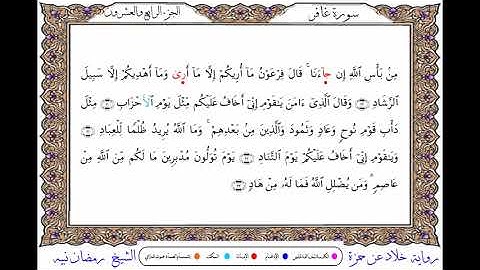 سورة غافر الجزء الرابع والعشرون
مِنۢ بَأْسِ ٱللَّهِ إِن جَآءَنَا ۚ قَالَ فِرْعَوْنُ مَآ أُرِيكُمْ إِلَّا مَآ أَرَىٰ وَمَآ أَهْدِيكُمْ إِلَّا سَبِيلَ
ٱلرَّشَادِ ۝ وَقَالَ ٱلَّذِىٓ ءَامَنَ يَٰقَوْمِ إِنِّىٓ أَخَافُ عَلَيْكُم مِّثْلَ يَوْمِ ٱلْأَحْزَابِ ۝ مِثْلَ
دَأْبِ قَوْمِ نُوحٍ وَعَادٍ وَثَمُودَ وَٱلَّذِينَ مِنۢ بَعْدِهِمْ ۚ وَمَا ٱللَّهُ يُرِيدُ ظُلْمًا لِّلْعِبَادِ ۝
وَيَٰقَوْمِ إِنِّىٓ أَخَافُ عَلَيْكُمْ يَوْمَ ٱلتَّنَادِ ۝ يَوْمَ تُوَلُّونَ مُدْبِرِينَ مَا لَكُم مِّنَ ٱللَّهِ مِنْ
عَاصِمٍ ۗ وَمَن يُضْلِلِ ٱللَّهُ فَمَا لَهُۥ مِنْ هَادٍ ۝
رواية خلاد عن حمزة الشيخ رمضان نبيه